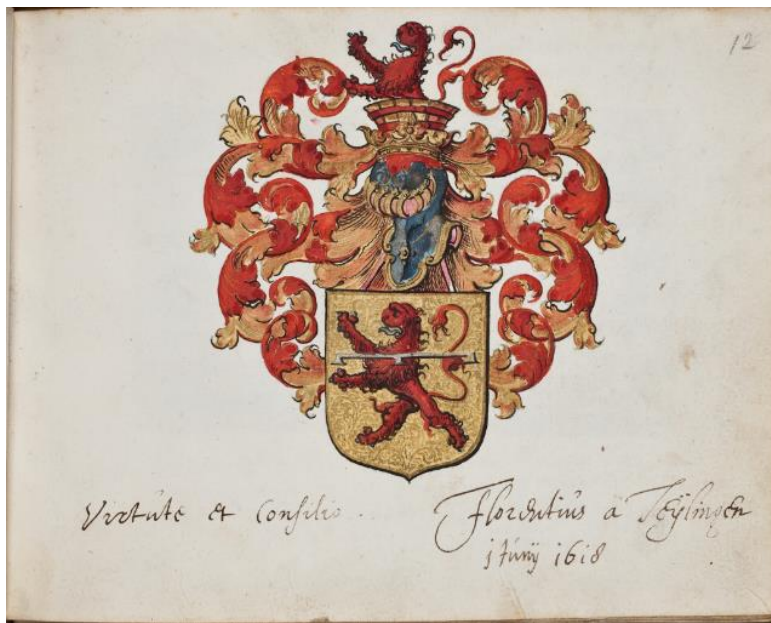 12
Virtúte et Consilio.
Florentiús à Teÿlingen
j Júnÿ 1618